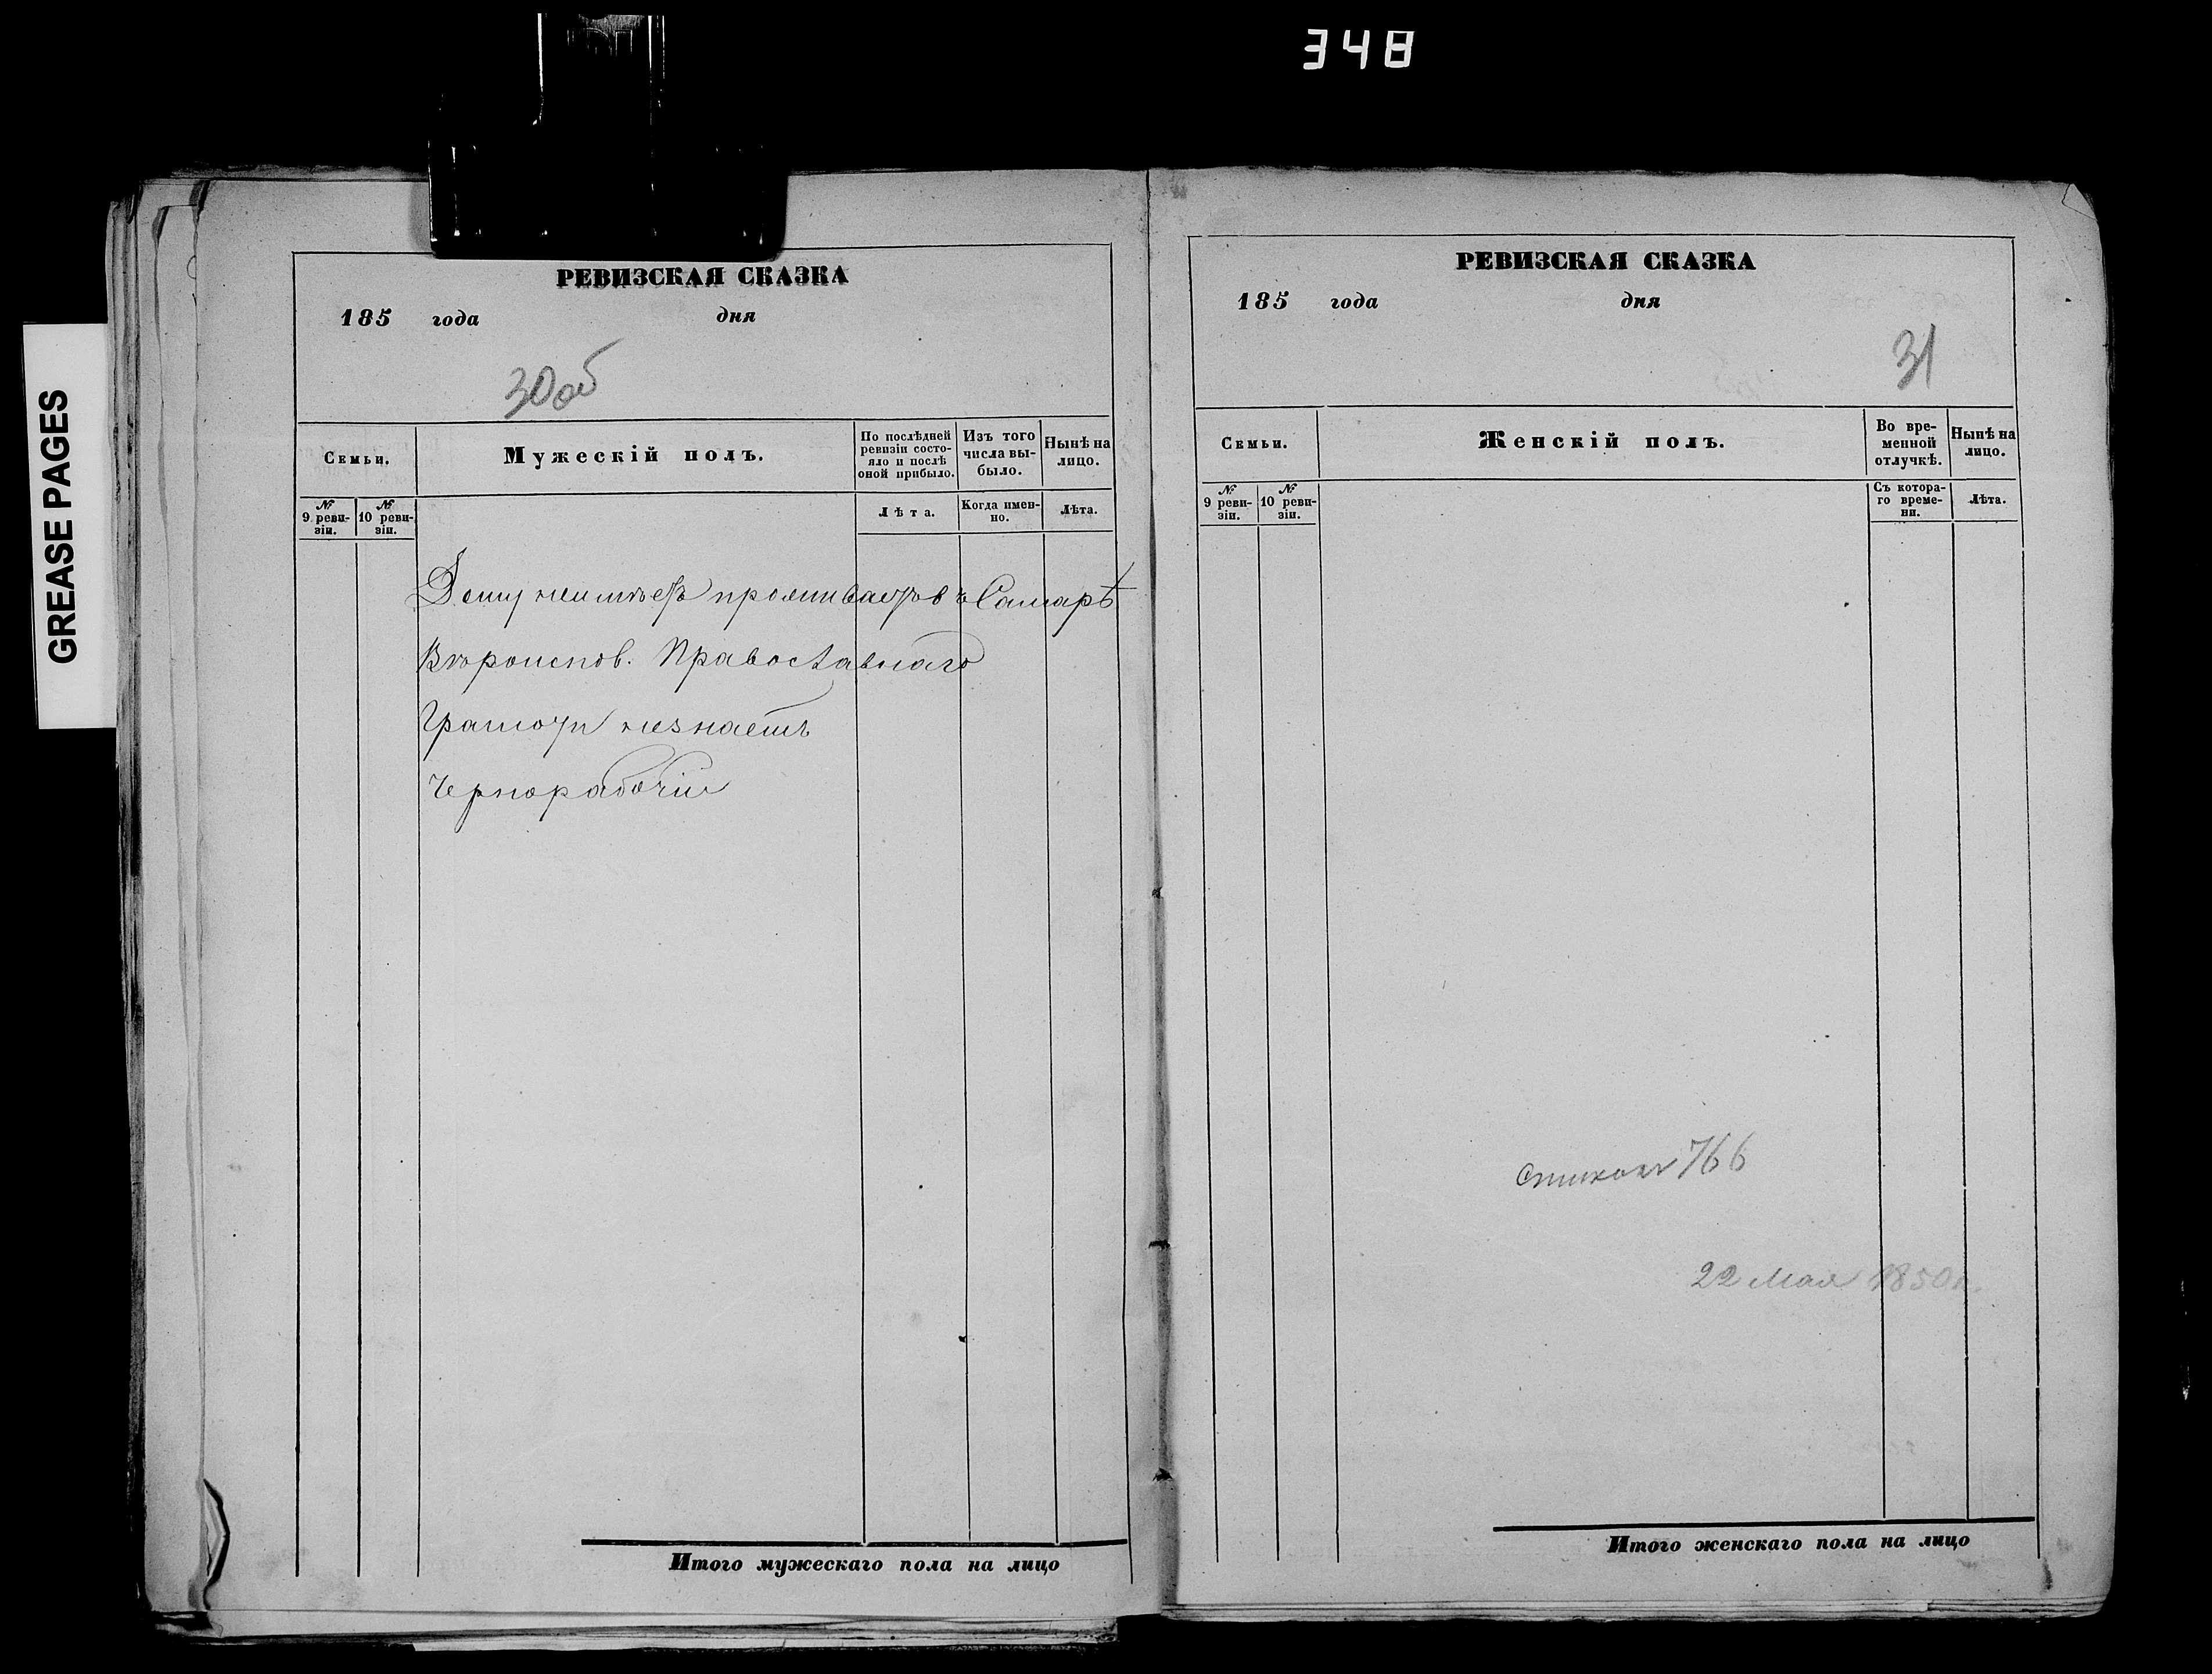 348
GREASE PAGES
РЕВИЗСКАЯ СКАЗКА
185 года дня
30 об
Семьи.
Мужескій полъ.
По послѣдней ревизіи состо-
яло и послѣ
оной прибыло.
Изъ того
числа вы-
было.
Нынѣ на
лицо.
№
9 реви-
зіи.
№
10 реви-
зіи.
Лѣта.
Когда имен-
но.
Лѣта.
Дому неимѣетъ проживаетъ въ Самарѣ
Вѣроиспов. Православнаго
Грамоты незнаетъ
Чернорабочій
Итого мужескаго пола на лицо
РЕВИЗСКАЯ СКАЗКА
185 года дня
31
Семьи.
Женскій полъ.
Во вре-
менной
отлучкѣ.
Нынѣ на
лицо.
№
9 реви-
зіи.
№
10 реви-
зіи.
Съ котора-
го време-
ни.
Лѣта.
766
22 Мая 1850 г.
Итого женскаго пола на лицо